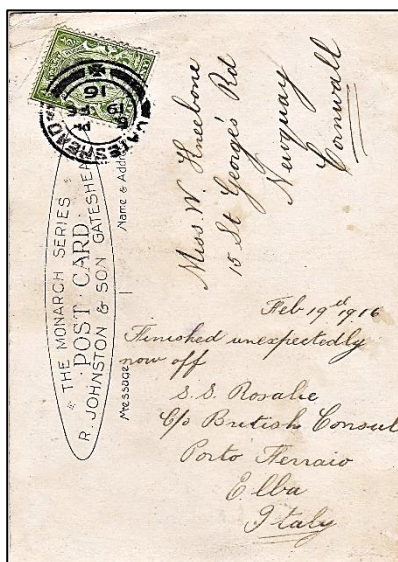 GATESHEAD
P
19 FE
16
THE MONARCH SERIES
POST CARD.
R. JOHNSTON & SON GATESHEAD
Name & Addre
Miss W. Kneebone
15 St Georges Rd
Newquay
Cornwall
Message
Feb 19th 1916
Finished unexpectedly
now off
S.S. Rosalie
C/o British Consul
Porto Ferraio
Elba
Italy